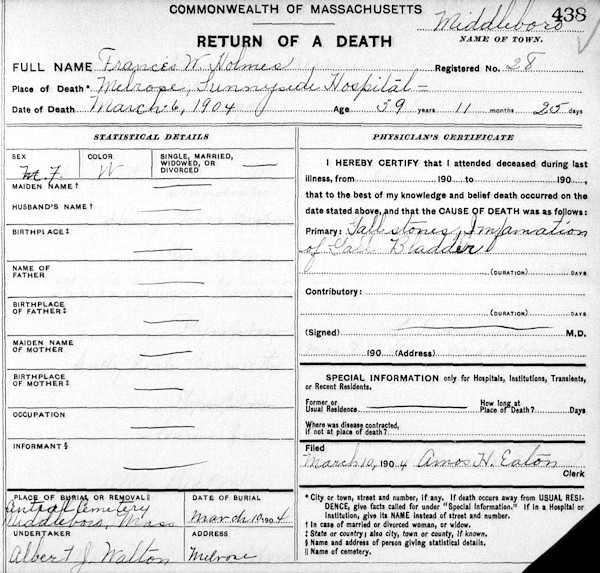 438
COMMONWEALTH OF MASSACHUSETTS
Middleboro
NAME OF TOWN.
RETURN OF A DEATH
FULL NAME Frances W. Holmes Registered No. 28
Place of Death* Melrose, Sunnyside Hospital
Date of Death March 6, 1904 Age 59 years 11 months 25 days
STATISTICAL DETAILS
SEX
COLOR
SINGLE, MARRIED,
WIDOWED, OR
DIVORCED
F. W
MAIDEN NAME †
HUSBAND'S NAME †
BIRTHPLACE ‡
NAME OF
FATHER
BIRTHPLACE
OF FATHER ‡
MAIDEN NAME
OF MOTHER
BIRTHPLACE
OF MOTHER ‡
OCCUPATION
INFORMANT §
PLACE OF BURIAL OR REMOVAL ||
Central Cemetery
Middleboro, Mass
DATE OF BURIAL
March 10 1904
UNDERTAKER
Albert J. Walton
ADDRESS
Melrose
PHYSICIAN'S CERTIFICATE
I HEREBY CERTIFY that I attended deceased during last
illness, from 190 to 190 ,
that to the best of my knowledge and belief death occurred on the
date stated above, and that the CAUSE OF DEATH was as follows:
Primary: Gall stones, Imfamation
of Gall Bladder
(DURATION) DAYS
Contributory:
(DURATION) DAYS
(Signed) M.D.
190 (Address)
SPECIAL INFORMATION only for Hospitals, Institutions, Transients,
or Recent Residents.
Former or
Usual Residence
How long at
Place of Death? Days
Where was disease contracted,
if not at place of death?
Filed
March 10, 1904 Amos H. Eaton
Clerk
* City or town, street and number, if any. If death occurs away from USUAL RESI-
DENCE, give facts called for under "Special Information." If in a Hospital or
Institution, give its NAME instead of street and number.
† In case of married or divorced woman, or widow.
‡ State or country; also city, town or county, if known.
§ Name and address of person giving statistical details.
|| Name of cemetery.